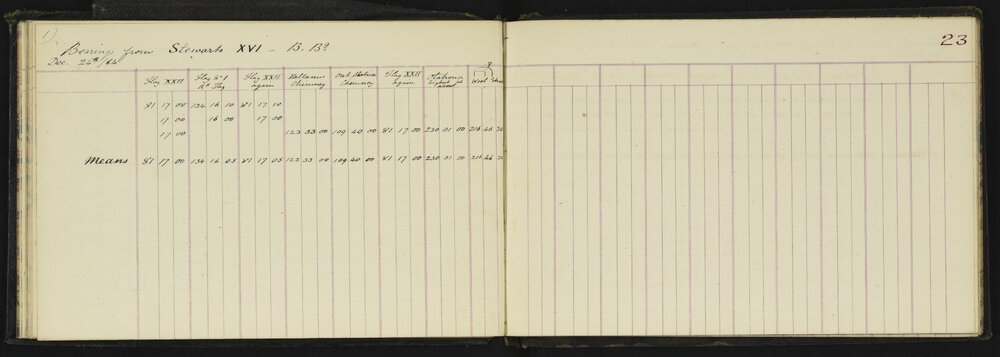 1)
23
Bearings from Stewarts XVI - B. Bº
Dec. 24th/64
Flag XXII Flag Nº1 Rd Flag Flag XXII again Chimney Out Station Chimney Flag XXII again Wool
81 17 00 134 16 10 81 17 10
17 00 16 00 17 00
17 00 123 33 00 109 40 00 81 17 00 230 01 00 216 46
Means 81 17 00 134 16 05 81 17 05 123 33 00 109 40 00 81 17 00 230 01 00 216 46